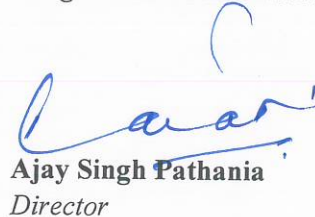 Ajay Singh Pathania
Director